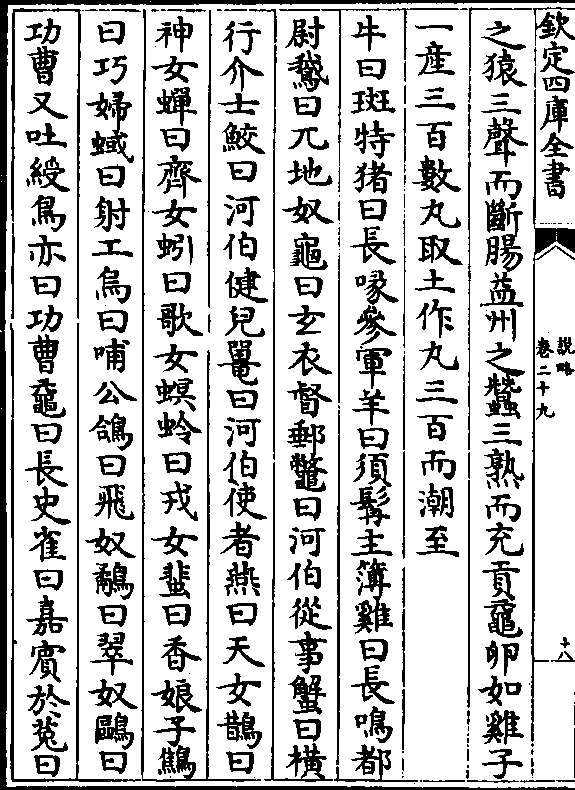 欽定四庫全書
說略
卷二十九
十八
之猿三聲而斷腸益州之蠶三熟而充貢黿卵如雞子
一產三百數丸取土作丸三百而潮至
牛曰斑特猪曰長喙參軍羊曰須髯主簿雞曰長鳴都
尉鵝曰兀地奴龜曰玄衣督郵鼈曰河伯從事蟹曰橫
行介士鮫曰河伯健兒鼉曰河伯使者燕曰天女鵲曰
神女蟬曰齊女蚓曰歌女螟蛉曰戎女蜚曰香娘子鷦
曰巧婦蜮曰射工烏曰哺公鴿曰飛奴鷸曰翠奴鷗曰
功曹又吐綬鳥亦曰功曹黿曰長史雀曰嘉賓於菟曰